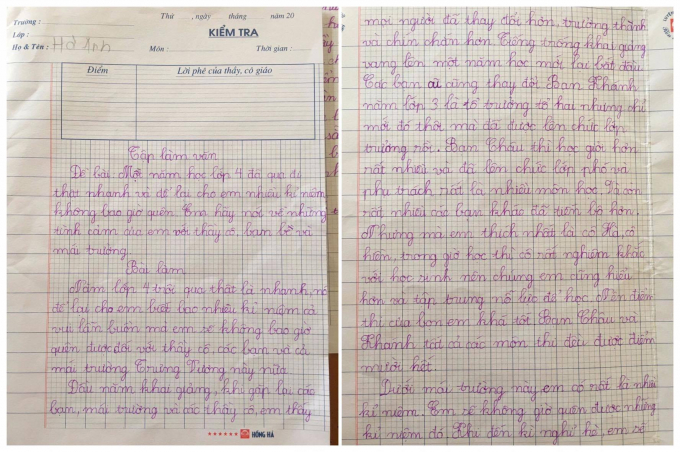 Thứ ....., ngày ..... tháng ..... năm 20
Trường :
Lớp :
Họ & Tên : Hồ Anh
KIỂM TRA
Môn :
Thời gian :
Điểm
Lời phê của thầy, cô giáo
Tập làm văn
Đề bài: Một năm học lớp 4 đã qua đi
thật nhanh và để lại cho em nhiều kỉ niệm
không bao giờ quên. Em hãy nói về những
tình cảm của em với thầy cô, bạn bè và
mái trường.
Bài làm
Năm lớp 4 trôi qua thật là nhanh, nó
để lại cho em biết bao nhiêu kỉ niệm cả
vui lẫn buồn mà em sẽ không bao giờ
quên được đối với thầy cô, các bạn và cả
mái trường Trưng Vương này nữa.
Đầu năm khai giảng, khi gặp lại các
bạn, mái trường và các thầy cô, em thấy
HỒNG HÀ
mọi người đã thay đổi hơn, trưởng thành
và chín chắn hơn. Tiếng trống khai giảng
vang lên một năm học mới lại bắt đầu.
Các bạn cũng thay đổi. Bạn Khánh
năm lớp 3 là tổ trưởng tổ hai nhưng chỉ
mới đó thôi mà đã được lên chức lớp
trưởng rồi. Bạn Châu thì học giỏi hơn
rất nhiều và đã lên chức lớp phó và
phụ trách rất là nhiều môn học. Và còn
rất nhiều các bạn khác đã tiến bộ hơn.
Nhưng mà em thích nhất là cô Hà, cô
hiền, trong giờ học thì cô rất nghiêm khắc
với học sinh nên chúng em cũng hiểu
hơn và tập trung nỗ lực để học. Nên điểm
thi của bọn em khá tốt. Bạn Châu và
Khánh tất cả các môn thi đều được điểm
mười hết.
Dưới mái trường này, em có rất là nhiều
kỉ niệm. Em sẽ không giờ quên được những
kỉ niệm đó. Khi đến kì nghỉ hè, em sẽ